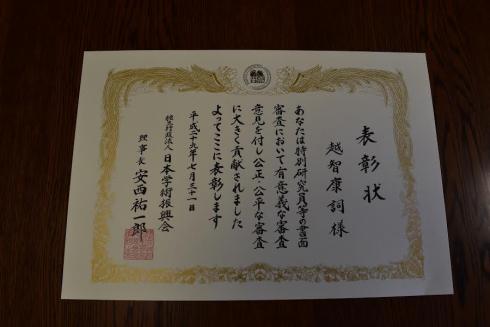 表彰状
越智康詞様
あなたは特別研究員等の書面
審査において有意義な審査
意見を付し公正・公平な審査
に大きく貢献されました
よってここに表彰します
平成二十九年七月三十一日
独立行政法人日本学術振興会
理事長 安西祐一郎